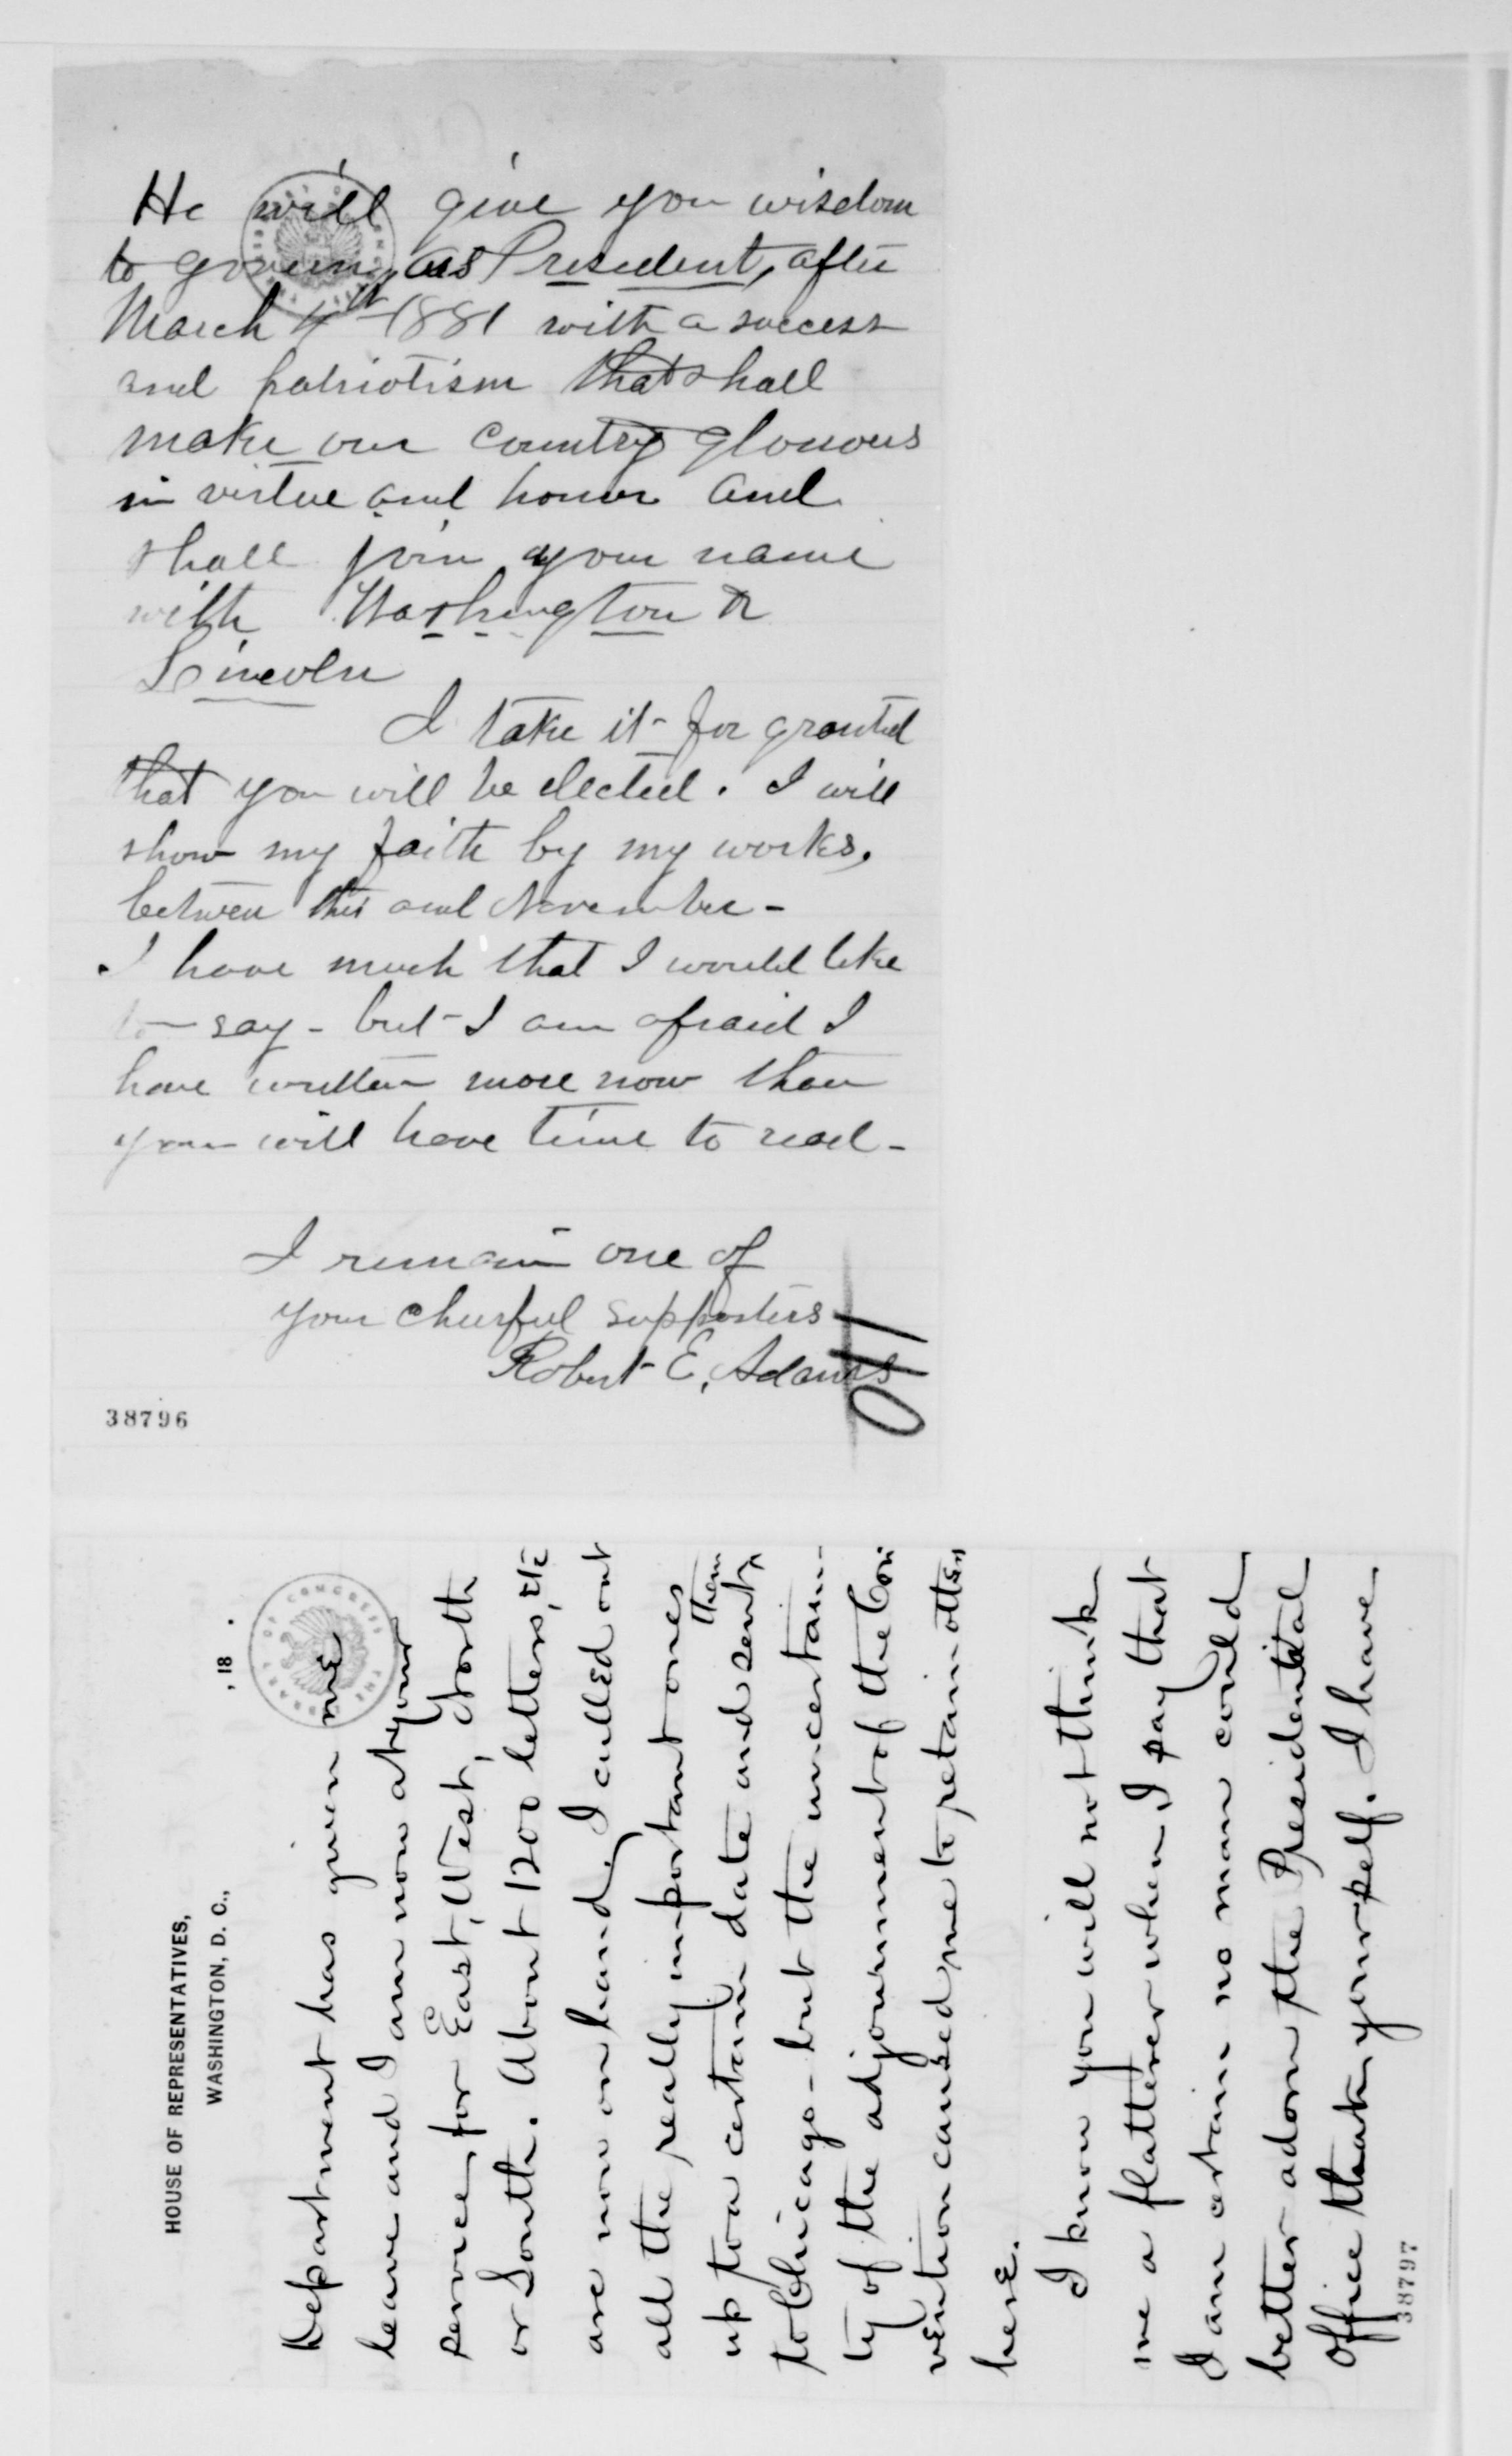 He will give you wisdom
to govern, as President, after
March 4th 1881 with a success
and patriotism that shall
make our country glorious
in virtue and honor and
shall join your name
with Washington &
Lincoln
I take it for granted
that you will be elected. I will
show my faith by my works,
between this and November -
I have much that I would like
to say - but I am afraid I
have written more now than
you will have time to read -
I remain one of
your cheerful supporters
Robert E. Adams
38796
HOUSE OF REPRESENTATIVES,
WASHINGTON, D. C., , 18 .
LIBRARY OF CONGRESS
Department has given me
leave and I am now at your
service, for East, West, North
or South. About 1200 letters, etc
are now on hand, I culled out
all the really important ones
up to a certain date and sent them
to Chicago - but the uncertain-
ty of the adjournment of the Con
vention caused me to retain
here.
I know you will not think
me a flatterer when I say that
I am certain no man could
better adorn the Presidential
Office than yourself. I have
38797